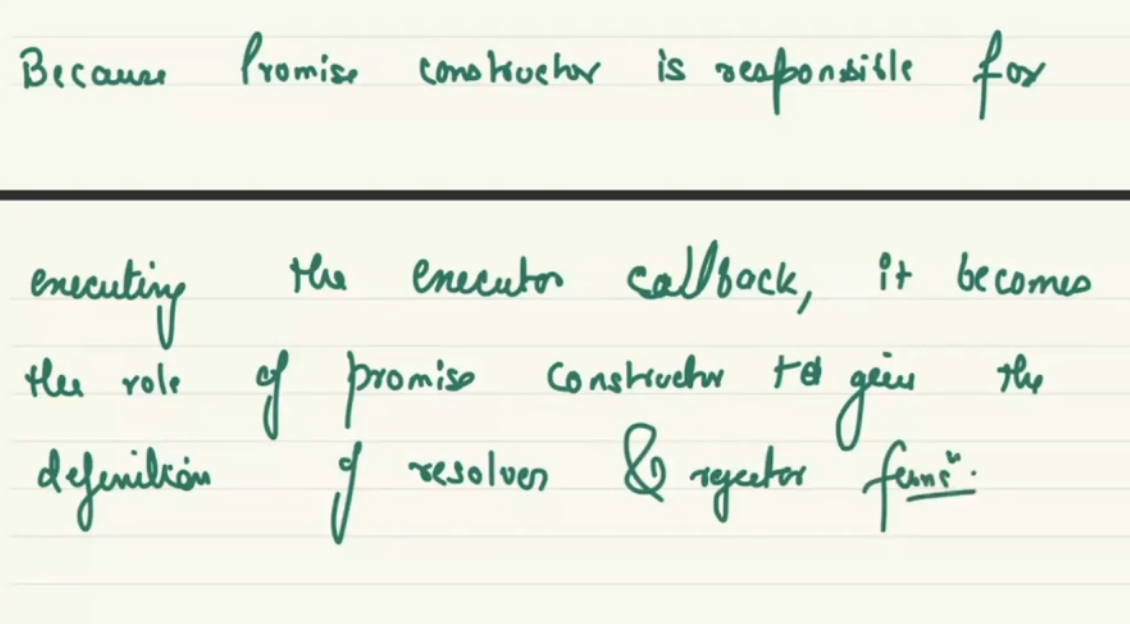 Because Promise constructor is responsible for
executing the executor callback, it becomes
the role of promise constructor to give the
definition of resolver & rejector funcⁿ.